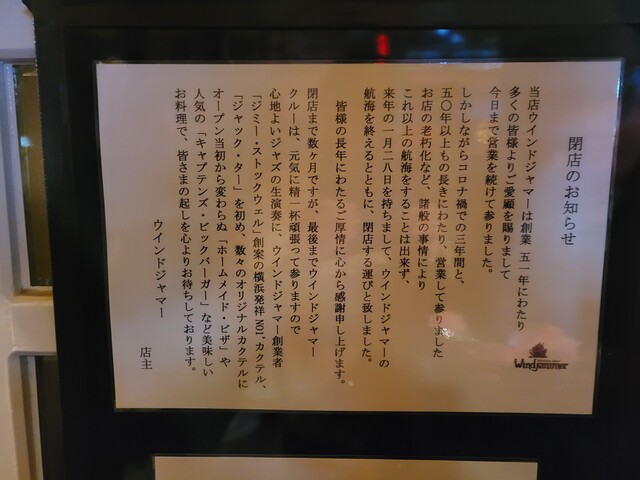 閉店のお知らせ
Windjammer
当店ウインドジャマーは創業 五一年にわたり
多くの皆様よりご愛顧を賜りまして
今日まで営業を続けて参りました。
しかしながらコロナ禍での三年間と、
五〇年以上もの長きにわたり、営業して参りました
お店の老朽化など、諸般の事情により
これ以上の航海をすることは出来ず、
来年の一月二八日を持ちまして、ウインドジャマーの
航海を終えるとともに、閉店する運びと致しました。
皆様の長年にわたるご厚情に心から感謝申し上げます。
閉店まで数ヶ月ですが、最後までウインドジャマー
クルーは、元気に精一杯頑張って参りますので
心地よいジャズの生演奏に、ウインドジャマー創業者
「ジミー・ストックウェル」創案の横浜発祥 NO1.カクテル、
「ジャック・ター」を初め、数々のオリジナルカクテルに
オープン当初から変わらぬ「ホームメイド・ピザ」や
人気の「キャプテンズ・ビックバーガー」など美味しい
お料理で、皆さまの起しを心よりお待ちしております。
ウインドジャマー
店主